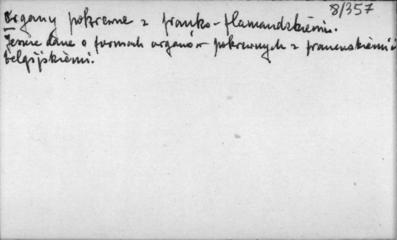 8/357
Organy pokrewne z franko-flamandzkiemi.
Jeszcze dane o formach organów pokrewnych z francuskiemi i
belgijskiemi.